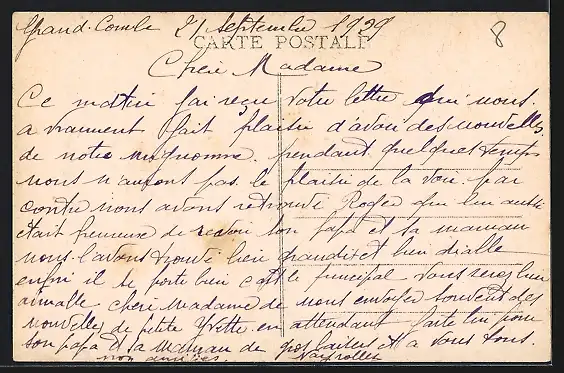 Grand-Combe 21 Septembre 1939
8
CARTE POSTALE
Cheri Madame
Ce matin j'ai reçu votre lettre qui nous
a vraiment fait plaisir d'avoir des nouvelles
de notre mignonne. pendant quelques temps
nous n'aurons pas le plaisir de la voir par
contre nous avons retrouvé Roger qui lui aussi
était heureux de revoir son papa et sa maman
nous l'avons trouvé bien grandit et bien
enfin il se porte bien c'est le principal vous serez bien
aimable cheri Madame de nous envoyer souvent des
nouvelles de petite Yvette en attendant faite lui pour
son papa et sa maman de gros et a vous tous.
nos amitiés. Nayrolles